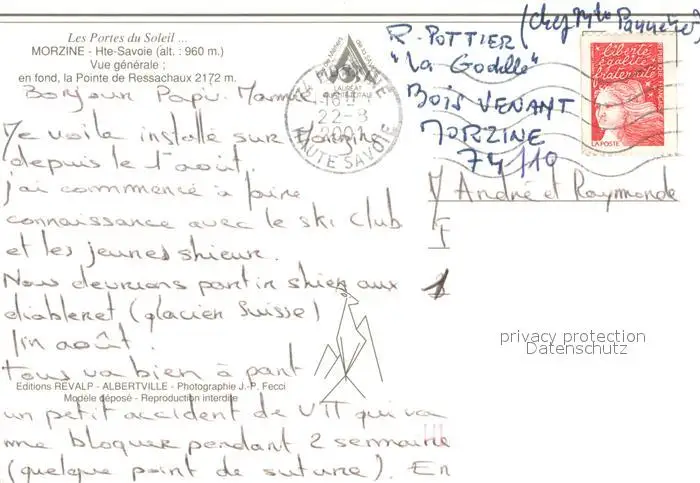 Les Portes du Soleil ...
MORZINE - Hte-Savoie (alt. : 960 m.)
Vue générale ;
en fond, la Pointe de Ressachaux 2172 m.
Bonjour Papi. Mamie
Me voila installé sur Morzine
depuis le 1 aout.
j'ai commencé à faire
connaissance avec le ski club
et les jeunes skieur.
Nous devrions partir skier aux
diableret (glacier Suisse)
fin août.
tous va bien à part
Editions REVALP - ALBERTVILLE - Photographie J.-P. Fecci
Modèle déposé - Reproduction interdite
un petit accident de VTT qui va
me bloquer pendant 2 semaine
(quelque point de suture). En
74 MORZINE
16H
22-8
2001
HAUTE SAVOIE
R. POTTIER (chez
"La Godille"
BOIS VENANT
MORZINE
74110
liberté
égalité
fraternité
RÉPUBLIQUE FRANÇAISE
LA POSTE
M André et Raymonde
F
privacy protection
Datenschutz